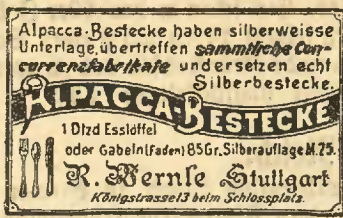 Alpacca-Bestecke haben silberweisse
Unterlage, übertreffen sämmtliche Con-
currenzfabrikate und ersetzen echt
Silberbestecke.
ALPACCA-BESTECKE
1 Dtzd Esslöffel
oder Gabeln (Faden) 85 Gr. Silberauflage M. 25.
R. Bernle Stuttgart
Königstrasse 13 beim Schlossplatz.